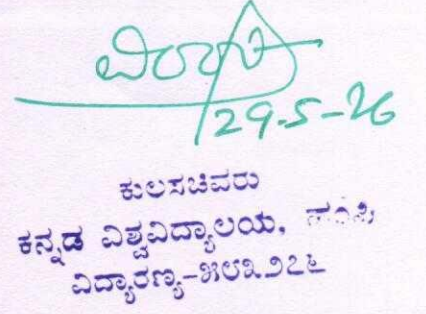 29-5-26
ಕುಲಸಚಿವರು
ಕನ್ನಡ ವಿಶ್ವವಿದ್ಯಾಲಯ, ಹಂಪಿ
ವಿದ್ಯಾರಣ್ಯ-೫೮೩೨೭೬